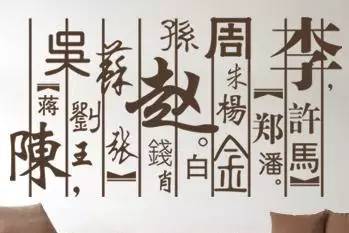 李，
許馬
【郑】潘。
周
朱楊
金
孫
赵。白
錢肖
蘇
張】
吳
劉王，
【蒋】
陳